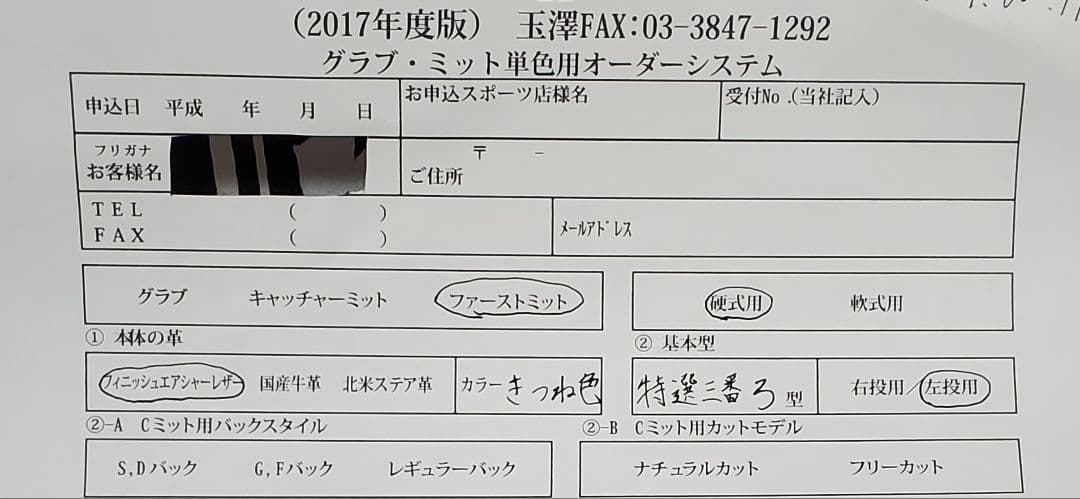 （2017年度版） 玉澤FAX:03-3847-1292
グラブ・ミット単色用オーダーシステム
申込日 平成 年 月 日 お申込スポーツ店様名 受付No.(当社記入)
フリガナ
お客様名 〒 - ご住所
TEL ( )
FAX ( ) メールアドレス
グラブ キャッチャーミット ファーストミット 硬式用 軟式用
① 本体の革 ② 基本型
フィニッシュエアシャーレザー 国産牛革 北米ステア革 カラー きつね色 特選三番ろ型 右投用/左投用
②-A Cミット用バックスタイル ②-B Cミット用カットモデル
S,Dバック G,Fバック レギュラーバック ナチュラルカット フリーカット